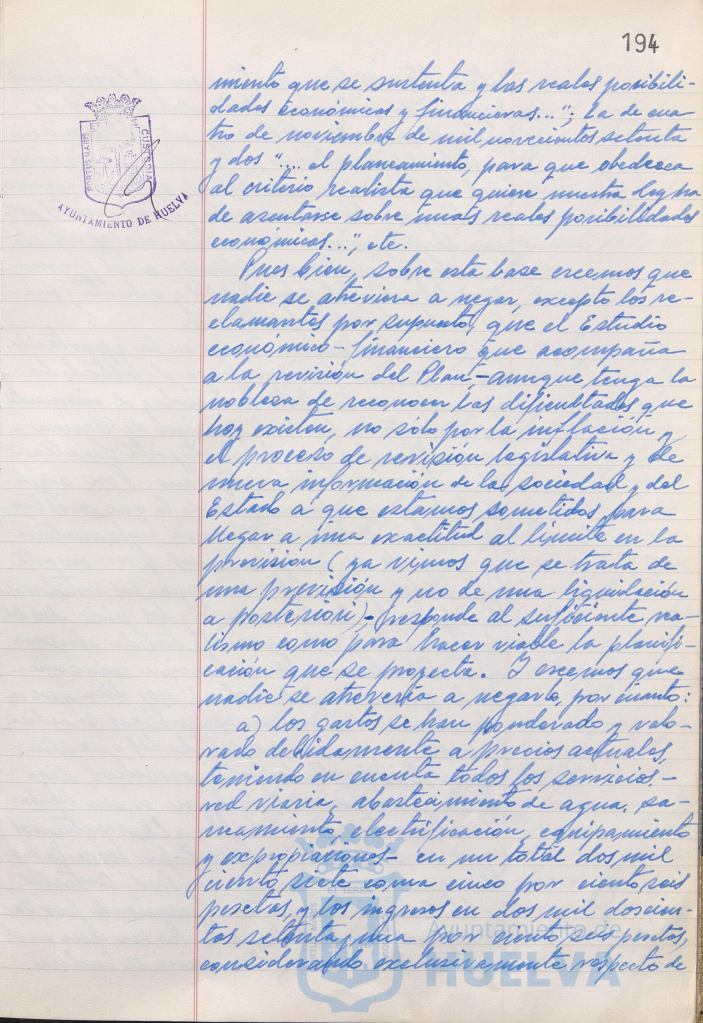 194
PORTUS MARIS
CUSTODIA
AYUNTAMIENTO DE HUELVA
miento que se sustenta y las reales posibili-
dades económicas y financieras..."; la de cua
tro de noviembre de mil novecientos setenta
y dos "... el planeamiento, para que obedezca
al criterio realista que quiere nuestra Ley ha
de asentarse sobre unas reales posibilidades
económicas...", etc.
Pues bien, sobre esta base creemos que
nadie se atreviera a negar, excepto los re-
clamantes por supuesto, que el Estudio
económico-financiero que acompaña
a la revisión del Plan,-aunque tenga la
nobleza de reconocer las dificultades que
hoy existen, no sólo por la inflación y
el proceso de revisión legislativa y de
nueva información de la sociedad y del
Estado a que estamos sometidos, para
llegar a una exactitud al límite en la
provisión (ya vimos que se trata de
una previsión y no de una liquidación
a posteriori)-, responde al suficiente rea-
lismo como para hacer viable la planifi-
cación que se proyecta. Y creemos que
nadie se atrevería a negarlo, por cuanto:
a) los gastos se han ponderado y valo-
rado debidamente a precios actuales,
teniendo en cuenta todos los servicios-
red viaria, abastecimiento de agua, sa-
neamiento, electrificación, equipamiento
y expropiaciones- en un total dos mil
ciento siete coma cinco por ciento seis
pesetas, y los ingresos en dos mil doscien-
tos setenta, una por ciento seis pesetas,
considerando exclusivamente respecto de
Ayuntamiento de
HUELVA